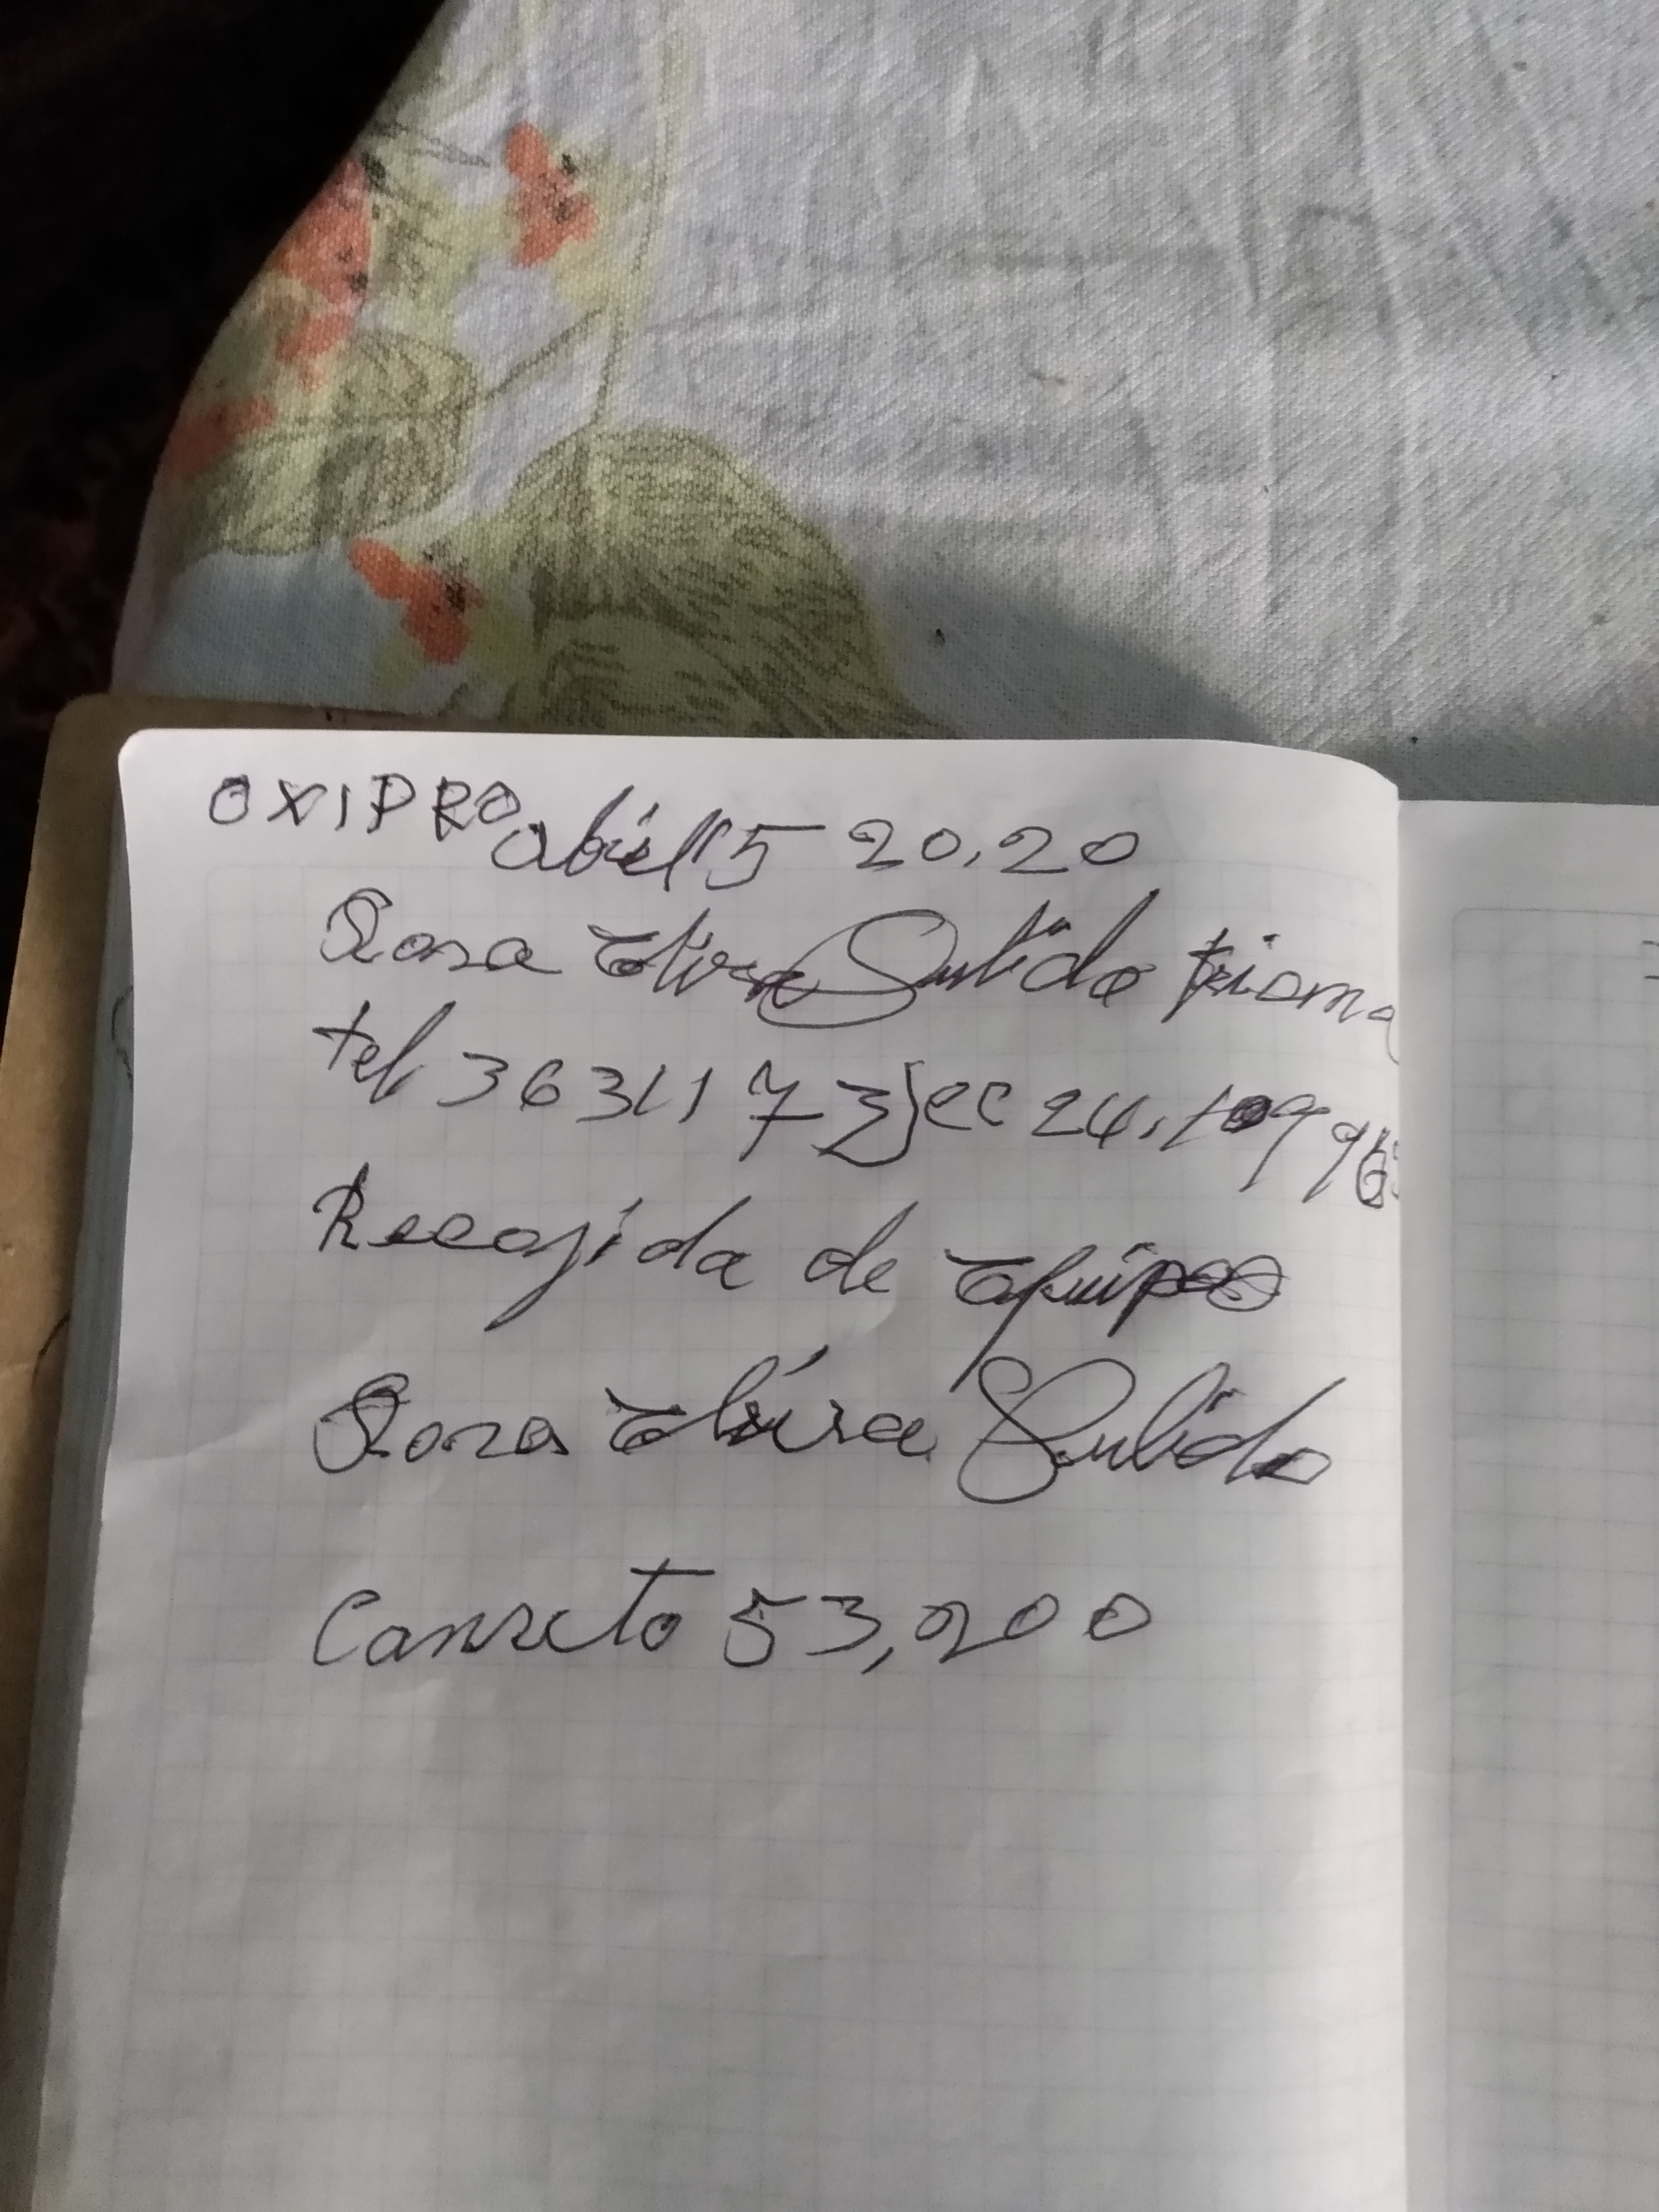 OXIPRO abril 5 20.20
Rosa Elvira Pulido
tel 3631173 cc 24.109 96
Recojida de Equipos
Rosa Elvira Pulido
Canseto 53,200